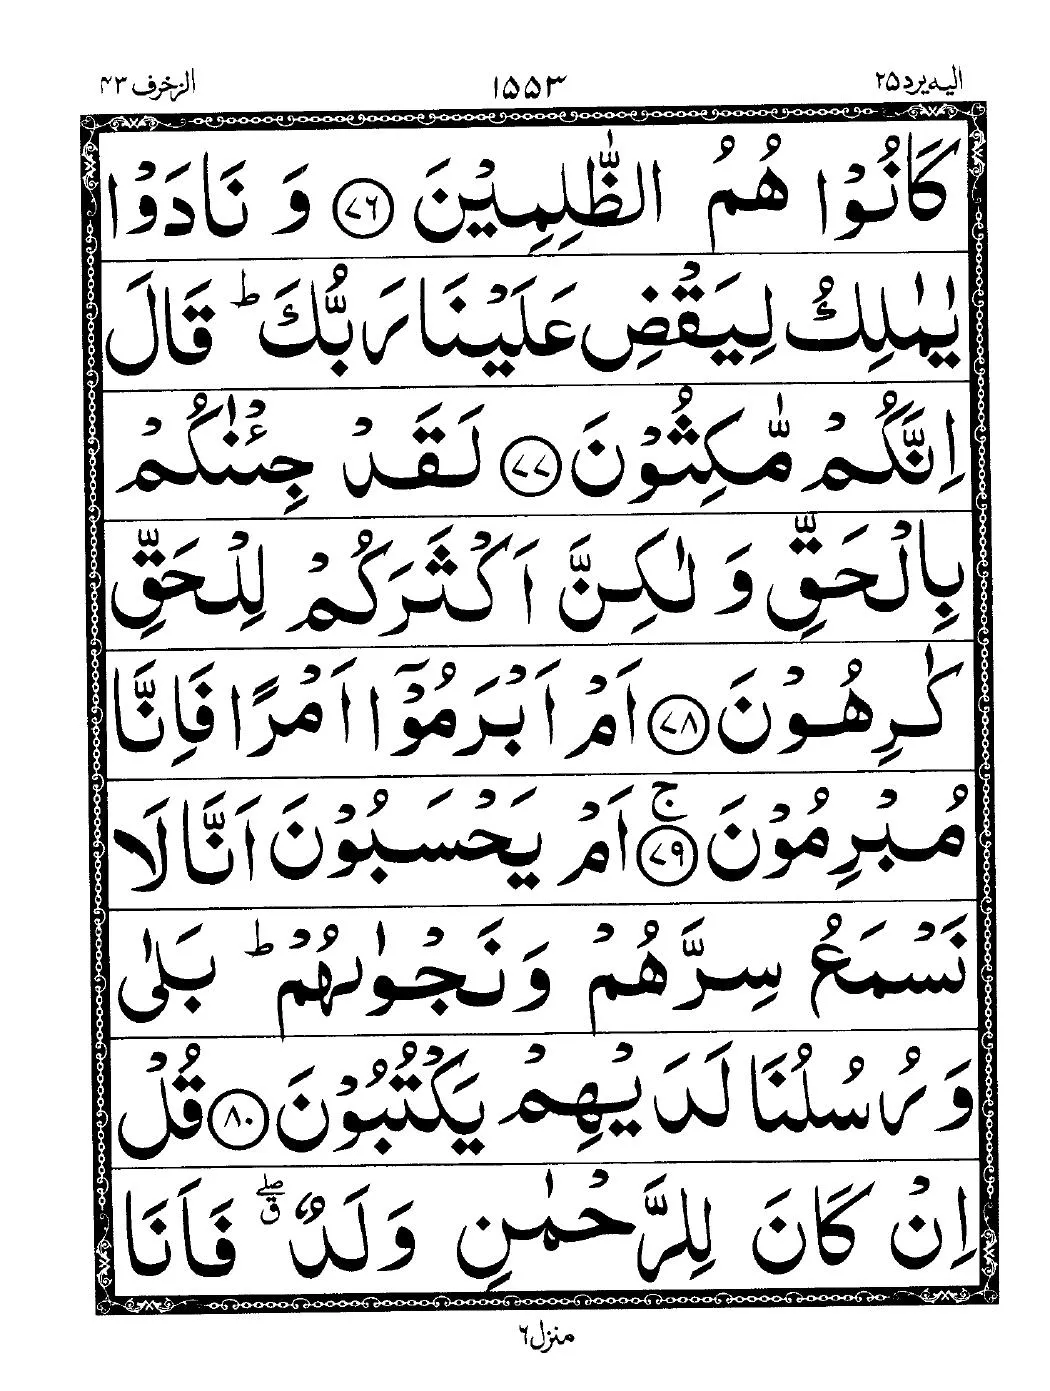 الیه یرد ۲۵
۱۵۵۳
الزخرف ۴۳
كَانُوْا هُمُ الظّٰلِمِيْنَ ﴿۷۶﴾ وَ نَادَوْا
يٰمٰلِكُ لِيَقْضِ عَلَيْنَا رَبُّكَ ؕ قَالَ
اِنَّكُمْ مّٰكِثُوْنَ ﴿۷۷﴾ لَقَدْ جِئْنٰكُمْ
بِالْحَقِّ وَ لٰكِنَّ اَكْثَرَكُمْ لِلْحَقِّ
كٰرِهُوْنَ ﴿۷۸﴾ اَمْ اَبْرَمُوْۤا اَمْرًا فَاِنَّا
مُبْرِمُوْنَ ۚ﴿۷۹﴾ اَمْ يَحْسَبُوْنَ اَنَّا لَا
نَسْمَعُ سِرَّهُمْ وَ نَجْوٰىهُمْ ؕ بَلٰى
وَ رُسُلُنَا لَدَيْهِمْ يَكْتُبُوْنَ ﴿۸۰﴾ قُلْ
اِنْ كَانَ لِلرَّحْمٰنِ وَلَدٌ ۖق فَاَنَا
منزل ۶